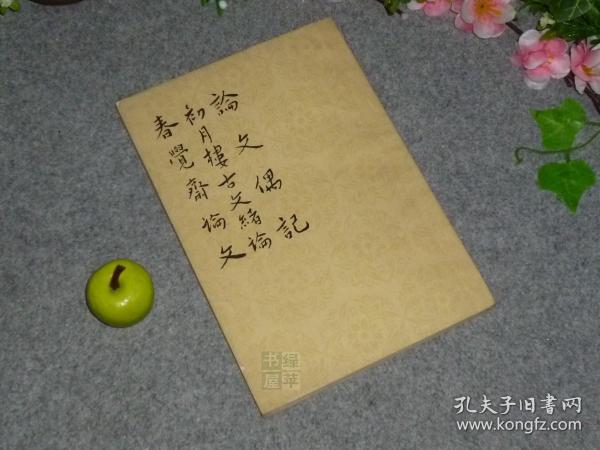 論文偶記
初月樓古文緒論
春覺齋論文
青苹书屋
孔夫子旧书网
www.kongfz.com